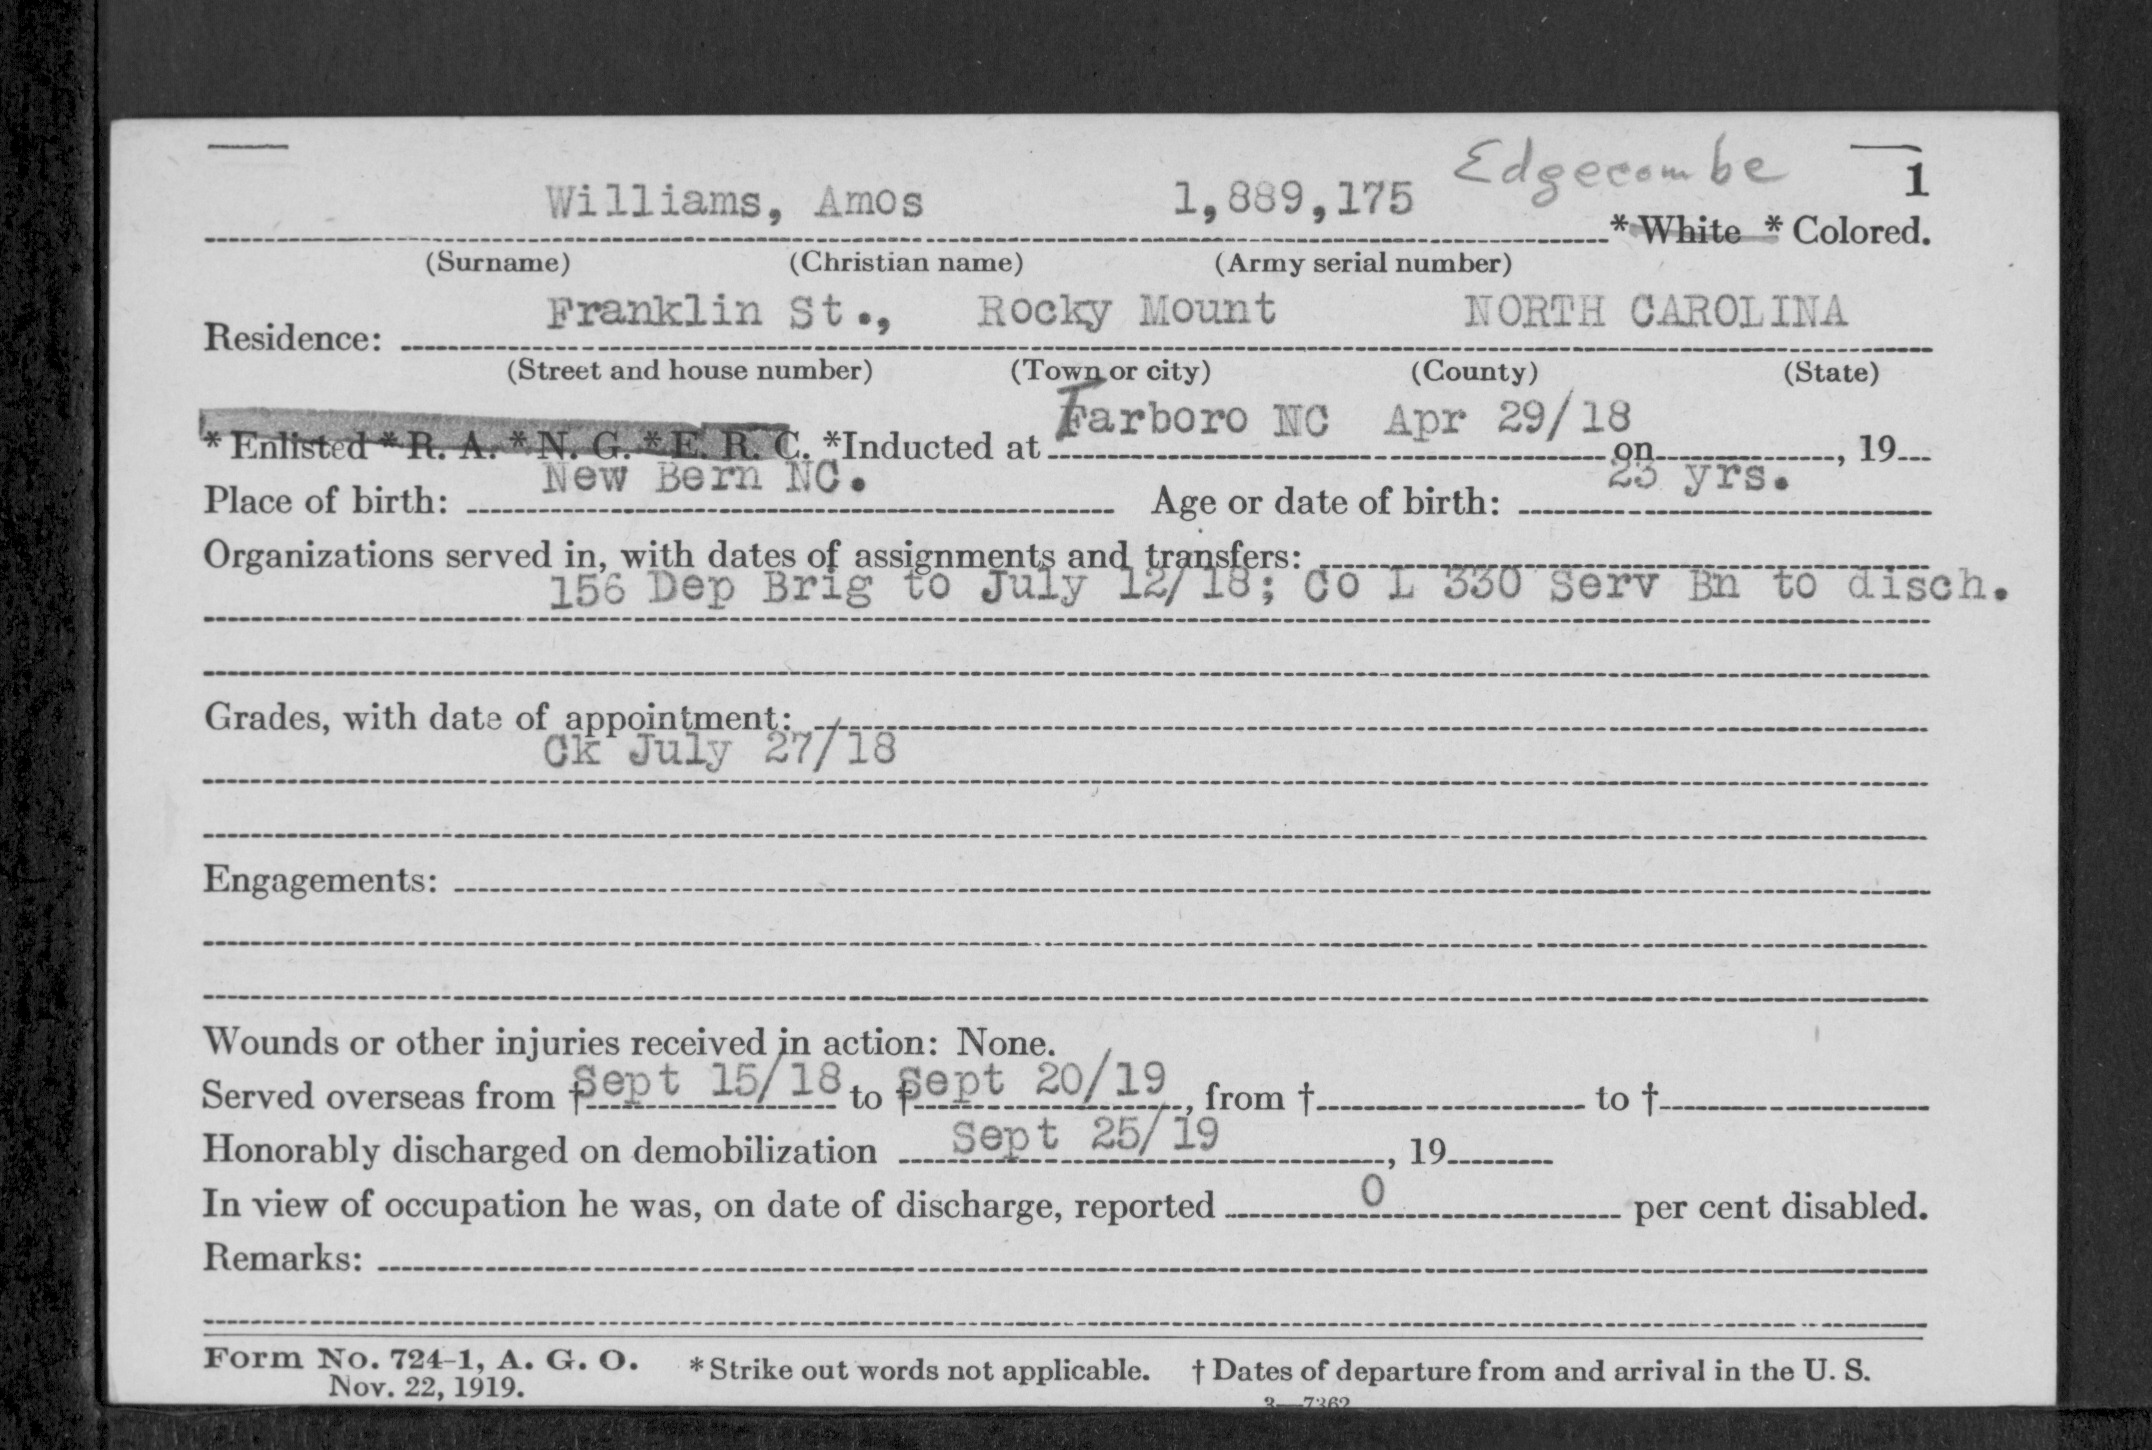 Edgecombe
1
Williams, Amos 1,889,175 * White * Colored.
(Surname) (Christian name) (Army serial number)
Residence: Franklin St., Rocky Mount NORTH CAROLINA
(Street and house number) (Town or city) (County) (State)
* Enlisted * R. A. * N. G. * E. R. C. *Inducted at Tarboro NC Apr 29/18 on , 19
Place of birth: New Bern NC. Age or date of birth: 23 yrs.
Organizations served in, with dates of assignments and transfers:
156 Dep Brig to July 12/18; Co L 330 Serv Bn to disch.
Grades, with date of appointment:
Ck July 27/18
Engagements:
Wounds or other injuries received in action: None.
Served overseas from † Sept 15/18 to † Sept 20/19, from † to †
Honorably discharged on demobilization Sept 25/19, 19
In view of occupation he was, on date of discharge, reported 0 per cent disabled.
Remarks:
Form No. 724-1, A. G. O. * Strike out words not applicable. † Dates of departure from and arrival in the U. S.
Nov. 22, 1919.
3—7362